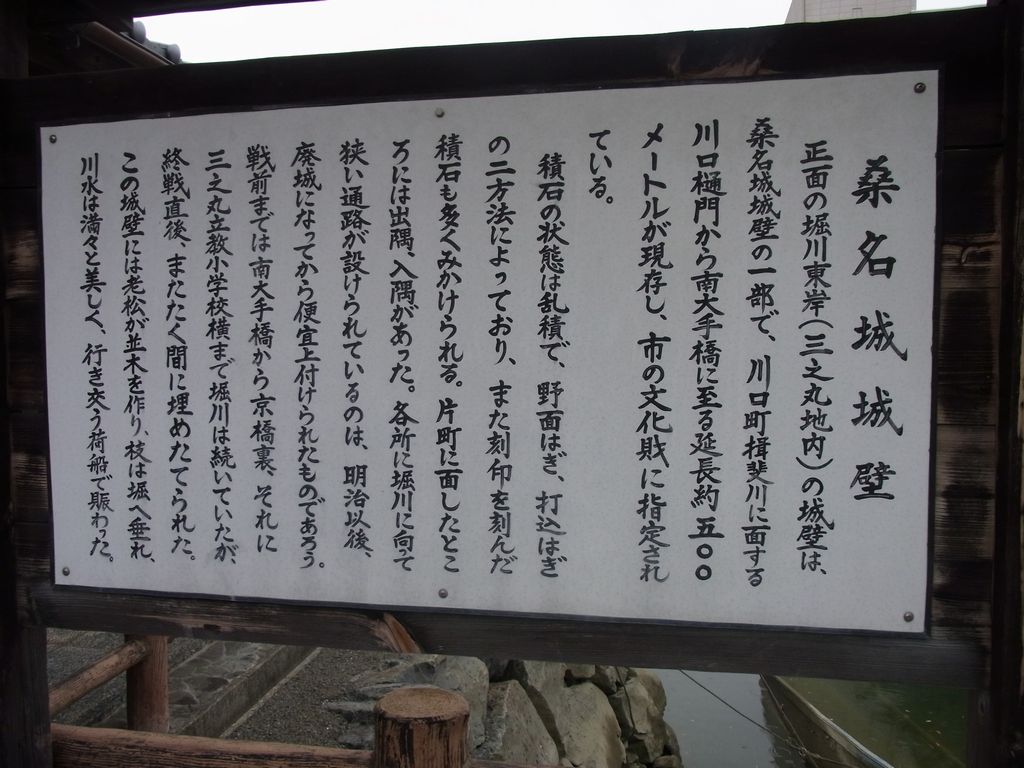 桑名城城壁
正面の堀川東岸(三之丸地内)の城壁は、
桑名城城壁の一部で、川口町揖斐川に面する
川口樋門から南大手橋に至る延長約五〇〇
メートルが現存し、市の文化財に指定され
ている。
積石の状態は乱積で、野面はぎ、打込はぎ
の二方法によっており、また刻印を刻んだ
積石も多くみかけられる。片町に面したとこ
ろには出隅、入隅があった。各所に堀川に向って
狭い通路が設けられているのは、明治以後、
廃城になってから便宜上付けられたものであろう。
戦前までは南大手橋から京橋裏、それに
三之丸立教小学校横まで堀川は続いていたが、
終戦直後、またたく間に埋めたてられた。
この城壁には老松が並木を作り、枝は堀へ垂れ、
川水は満々と美しく、行き交う荷船で賑わった。